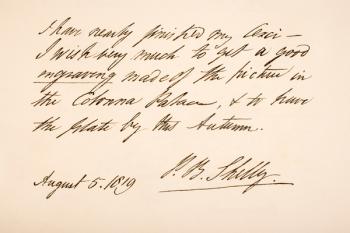 I have nearly finished my Cenci –
I wish very much to get a good
engraving made of the picture in
the Colonna Palace, & to have
the plate by this Autumn.
P. B. Shelly.
August 5. 1819